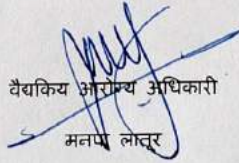 वैद्यकिय आरोग्य अधिकारी
मनपा लातूर